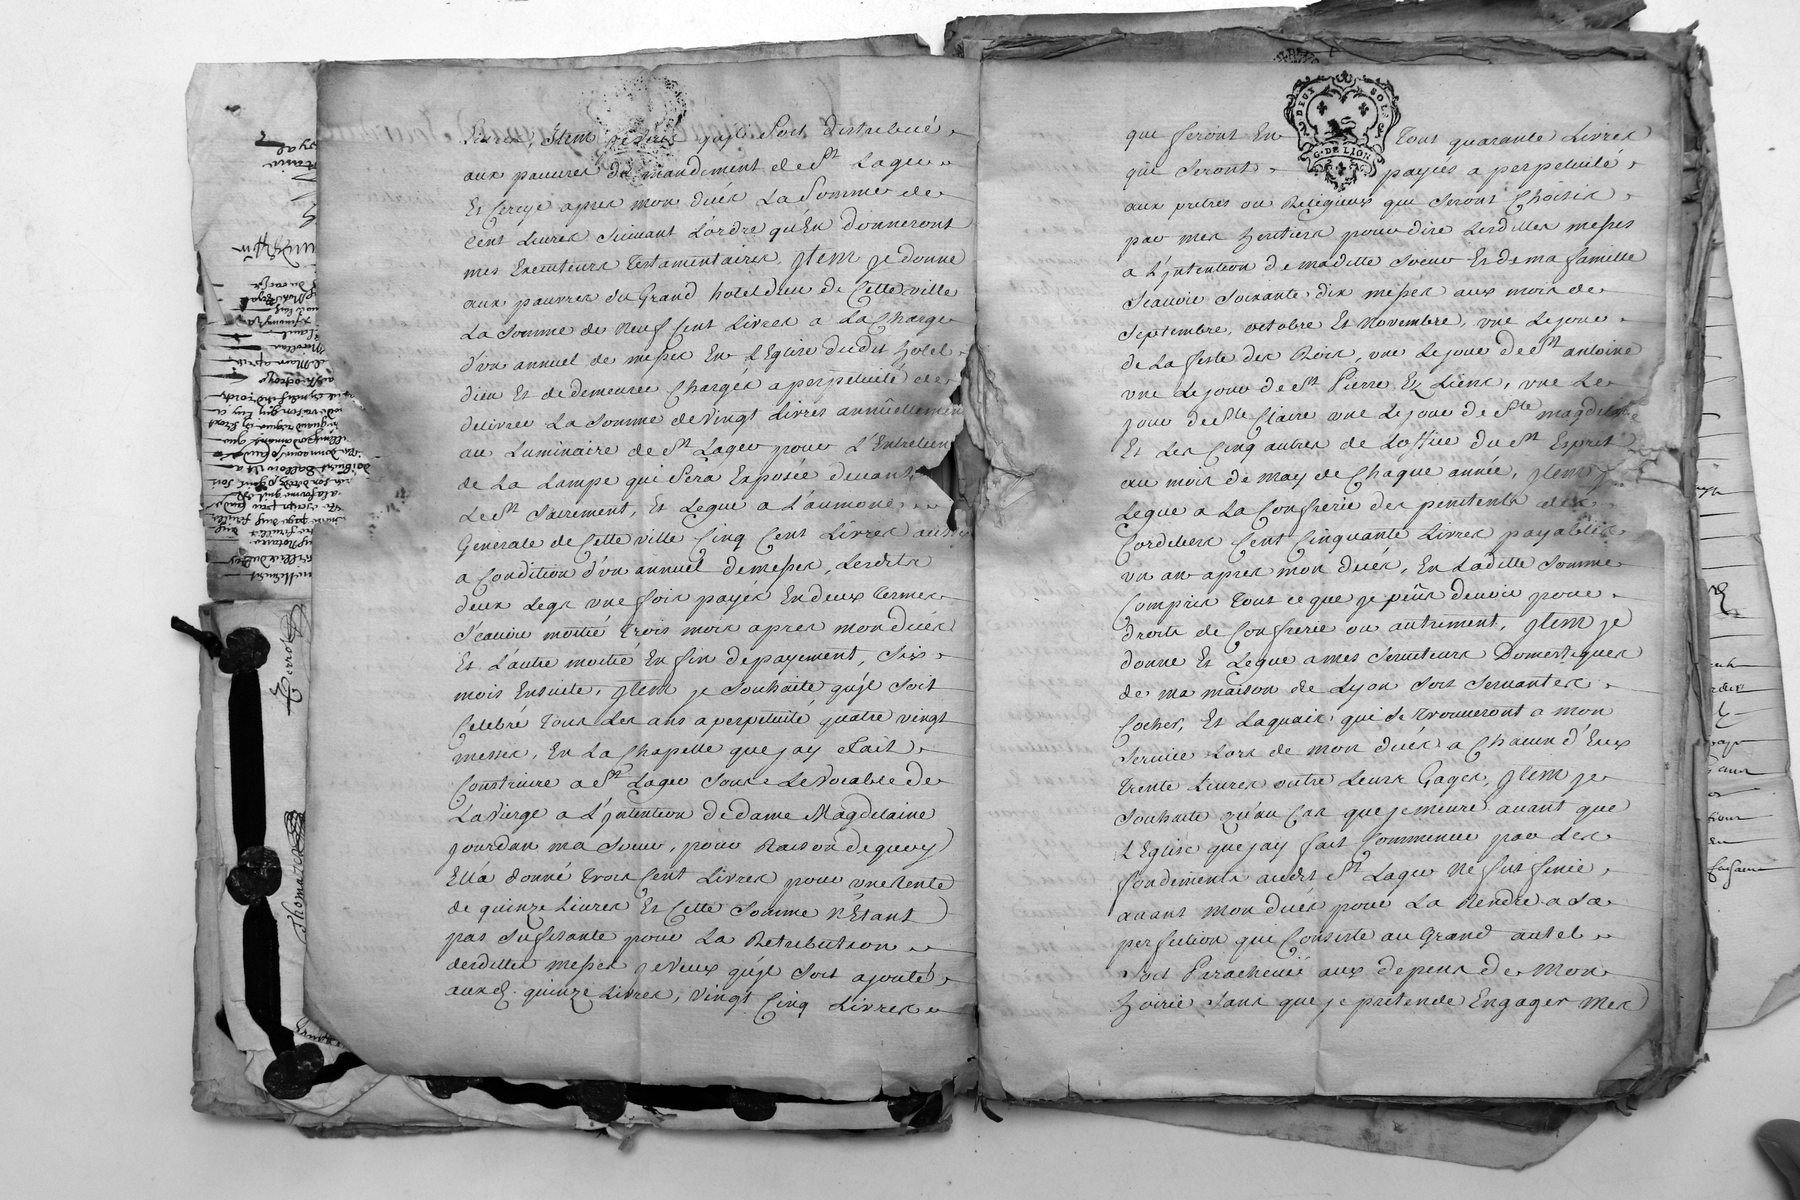 Livres, Item je désire qu'jl soit distribué
aux pauvres du mandement de St Lager
Et Cercye apres mon ducés La Somme de
Cent Livres suivant L'ordre qu'En donneront
mes Executeurs Testamentaires, Jtem je donne
aux pauvres du Grand hotel dieu de Cette ville
La Somme de Neuf Cent Livres a La Charge
d'un annuel de messes En L'Eglise dudit hotel
dieu Et de demeurer Chargés a perpetuité de
delivrer La Somme de vingt Livres annuellement
au Luminaire de St Lager pour L'Entretien
de La Lampe qui sera Exposée devant
Le St Sacrement, Et Legue a L'aumone
Generale de Cette ville Cinq Cent Livres aussi
a Condition d'un annuel de messes, Lesdits
deux Legs une fois payés En deux termes
Scavoir moitié trois mois apres mon decés
Et L'autre moitié En fin de payement, Six
mois Ensuite, Jtem je souhaite qu'jl soit
Celebré tous Les ans a perpetuité quatre vingt
messes, En La Chapelle que jay fait
Construire a St Lager sous Le vocable de
La vierge a L'jntention de dame Magdelaine
jourdan ma Soeur, pour Raison de quoy
Ella donné trois Cent Livres pour une rente
de quinze Livres Et Cette Somme N'Etant
pas sufisante pour La Retribution
desdittes messes je veux qu'jl soit ajouté
auxd. quinze Livres, vingt Cinq Livres
DEUX SOLS
G. DE LION
qui feront En tout quarante Livres
qui seront payés a perpetuité
aux pretres ou Religieux qui seront Choisis
par mes heritiers pour dire Lesdittes messes
a L'jntention de maditte soeur Et de ma famille
Scavoir soixante dix messes aux mois de
Septembre, octobre Et Novembre, une Le jour
de La feste des Rois, une Le jour de St antoine
une Le jour de St Pierre Ez Liens, une Le
jour de Ste Claire une Le jour de Ste magdelaine
Et Les Cinq autres de L'office du St Esprit
au mois de may de Chaque année, Jtem je
Legue a La Confrerie des penitents des
Cordeliers Cent Cinquante Livres payables
un an apres mon ducés, En Laditte Somme
Compris tout ce que je peux devoir pour
droits de Confrerie ou autrement, Jtem je
donne Et Legue a mes serviteurs Domestiques
de ma maison de Lyon soit servantes
Cocher, Et Laquais qui se trouveront a mon
service Lors de mon ducés a Chacun d'Eux
trente Livres outre Leurs Gages, Jtem je
souhaite qu'au Cas que je meure avant que
L'Eglise que jay fait Commencer par Les
fondements audit St Lager Ne fut finie
avant mon ducés pour La Rendre a Sa
perfection qui Consiste au Grand autel
soit Parachevé aux depens de Mon
hoirie sans que je pretende Engager Mes